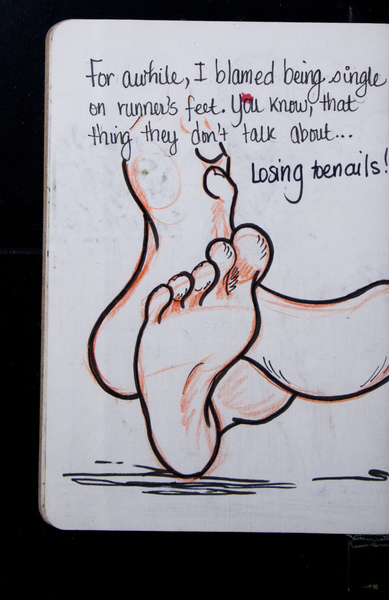 For awhile, I blamed being single
on runner's feet. You know, that
thing they don't talk about...
Losing toenails!